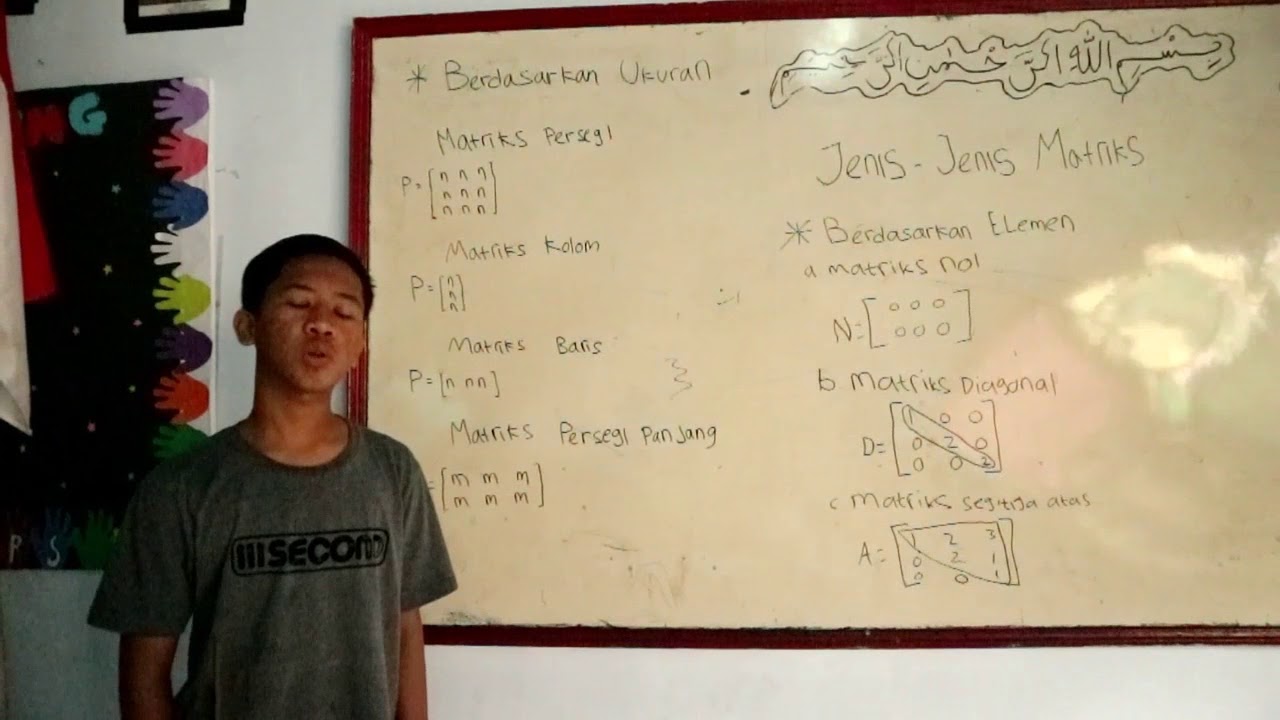 * Berdasarkan Ukuran
Matriks Persegi
P = [n n n
n n n
n n n]
Matriks Kolom
P = [n
n
n]
Matriks Baris
P = [n n n]
Matriks Persegi Panjang
= [m m m
m m m]
بسم الله الرحمن الرحيم
Jenis - Jenis Matriks
* Berdasarkan Elemen
a matriks nol
N = [0 0 0
0 0 0]
b matriks Diagonal
D = [1 0 0
0 2 0
0 0 2]
c matriks segitiga atas
A = [1 2 3
0 2 1
0 0 1]
NG
PS
SECOND